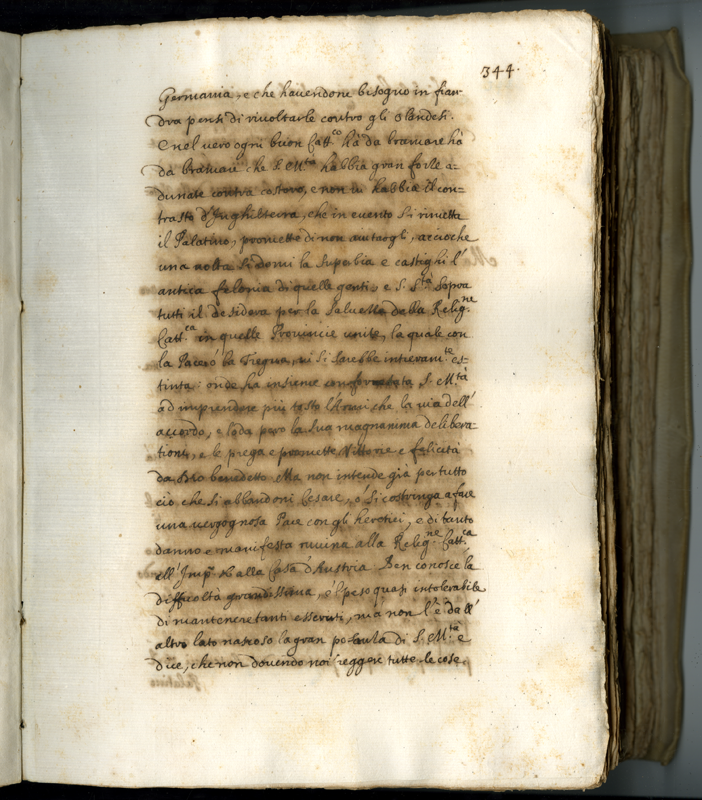 344.
Germania, e che havendone bisogno in fian-
dra pensi di rivoltarle contro gli Olandesi.
E nel vero ogni buon Catt.co hà da bramare hà
da bramare che S. M.tà habbia gran forze a-
dunate contra costoro, e non vi habbia il con-
trasto d'Inghilterra, che in evento si rimetta
il Palatino, promette di non aiutargli, accioche
una volta si domi la Superbia e castighi l'
antica fellonia di quelle genti, e S. S.tà sopra
tutti il desidera per la Salvezza della Relig.ne
Catt.ca in quelle Provincie unite, la quale con
la Pace ò la Tregua, vi si sarebbe intieram.te es-
tinta: onde ha insieme confortata S. M.tà
ad imprendere più tosto l'Armi che la via dell'
accordo, e loda però la sua magnanima delibera-
tione, e le prega e promette Vittorie e felicità
da Dio benedetto. Ma non intende già per tutto
ciò che si abbandoni Cesare, ò si costringa a fare
una vergognosa Pace con gli heretici, e di tanto
danno e manifesta ruina alla Relig.ne Catt.ca
all'Imp.o et alla Casa d'Austria. Ben conosce la
difficoltà grandissima, e'l peso quasi intolerabile
di mantenere tanti esserciti, mà non l'è dall'
altro lato nascoso la gran potenza di S. M.tà e
dice, che non dovendo noi reggere tutte le cose